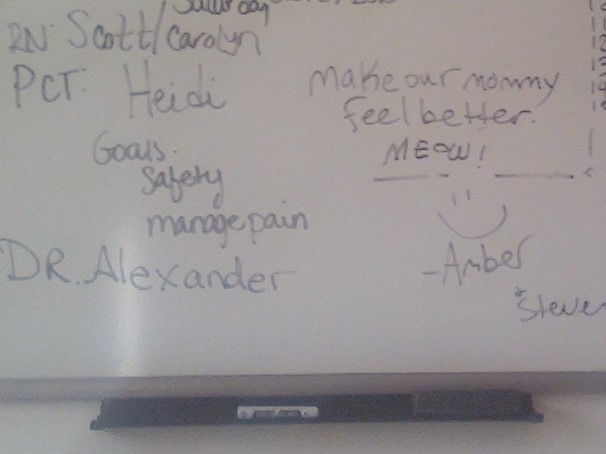 Saturday
RN: Scott/Carolyn
PCT: Heidi
Goals:
Safety
manage pain
DR. Alexander
make our mommy
feel better.
MEOW!
-Amber
*Steve
11
12
13
14